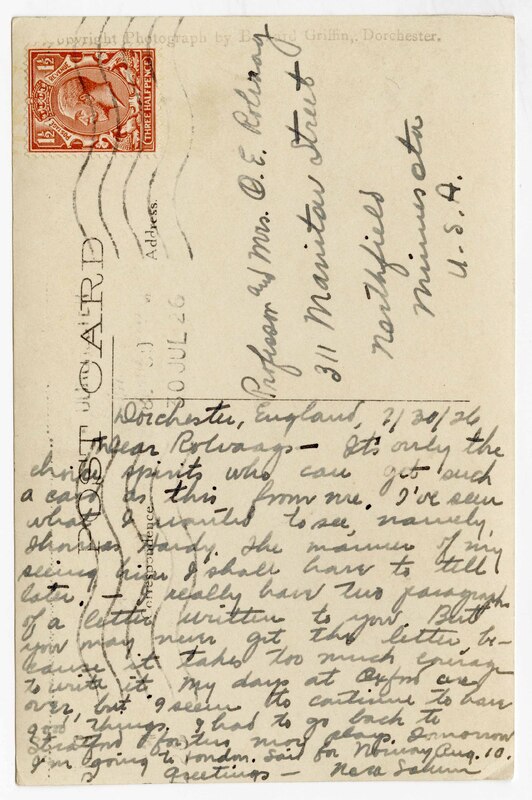 Copyright Photograph by Edward Griffin, Dorchester.
1½ POSTAGE REVENUE 1½
THREE HALFPENCE
POST CARD
Address.
Correspondence.
30 JUL 26
Professor and Mrs. O. E. Rolvaag
311 Manitou Street
Northfield
Minnesota
U.S.A.
Dorchester, England, 7/30/26
Dear Rolvaags — It's only the
choice spirits who can get such
a card as this from me. I've seen
what I wanted to see, namely,
Thomas Hardy. The manner of my
seeing him I shall have to tell
later. I really have two paragraphs
of a letter written to you. But
you may never get the letter, be-
cause it takes too much courage
to write it. My days at Oxford are
over, but I seem to continue to have
good things. I had to go back to
Stratford for two more plays. Tomorrow
I'm going to London. Sail for Norway Aug. 10.
Greetings —